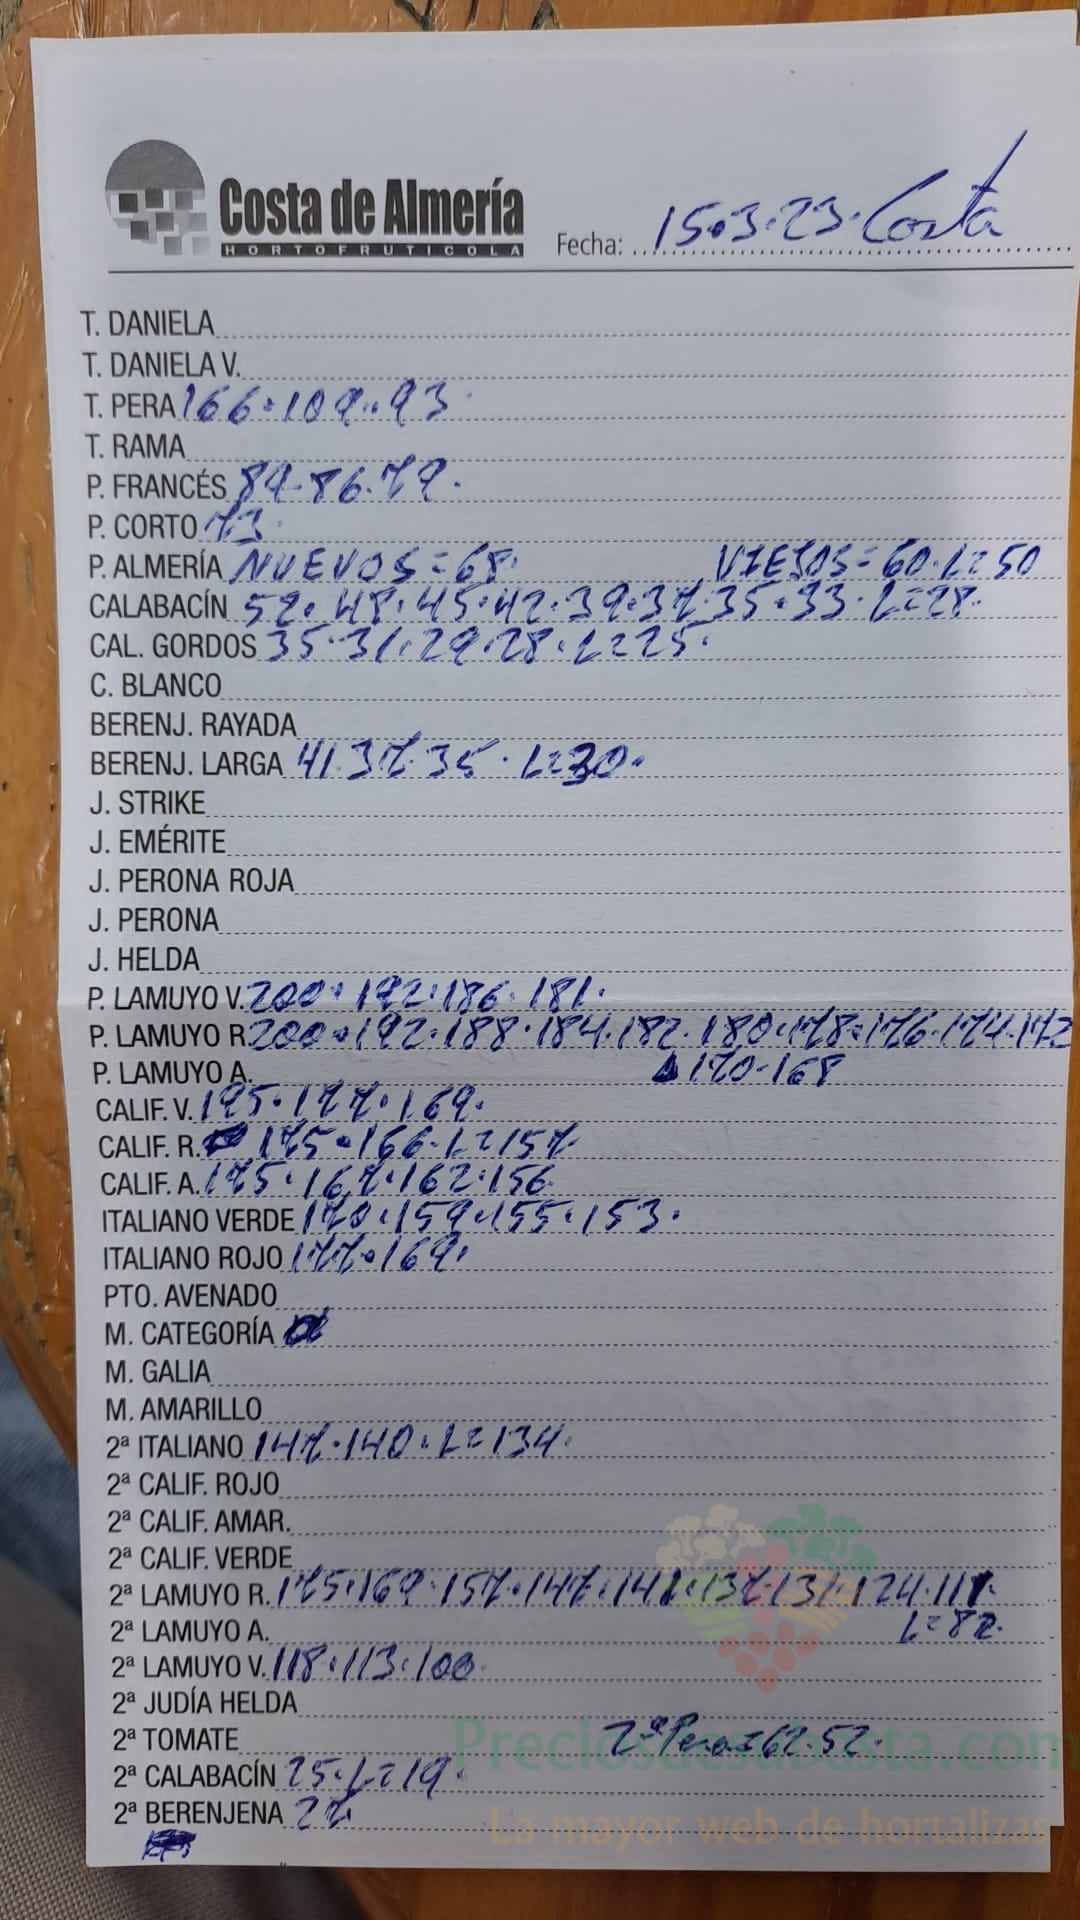 Costa de Almería
HORTOFRUTICOLA
Fecha: 15.3.23. Costa
T. DANIELA
T. DANIELA V.
T. PERA 166.109.93.
T. RAMA
P. FRANCÉS 89.86.79.
P. CORTO 73.
P. ALMERÍA NUEVOS=68. VIEJOS=60.L=50
CALABACÍN 52.48.45.42.39.37.35.33.L=28.
CAL. GORDOS 35.31.29.28.L=25.
C. BLANCO
BERENJ. RAYADA
BERENJ. LARGA 41.37.35.L=30.
J. STRIKE
J. EMÉRITE
J. PERONA ROJA
J. PERONA
J. HELDA
P. LAMUYO V. 200.192.186.181.
P. LAMUYO R. 200.192.188.184.182.180.178.176.174.172
P. LAMUYO A. 170.168
CALIF. V. 195.177.169.
CALIF. R. 175.166.L=157
CALIF. A. 175.167.162.156
ITALIANO VERDE 170.159.155.153.
ITALIANO ROJO 177.169.
PTO. AVENADO
M. CATEGORÍA
M. GALIA
M. AMARILLO
2ª ITALIANO 147.140.L=134.
2ª CALIF. ROJO
2ª CALIF. AMAR.
2ª CALIF. VERDE
2ª LAMUYO R. 175.169.157.147.141.137.131.124.111.
2ª LAMUYO A. L=82.
2ª LAMUYO V. 118.113.100.
2ª JUDÍA HELDA
2ª TOMATE 2ª Pera=62.52.
Preciosdesubasta.com
2ª CALABACÍN 25.L=19.
2ª BERENJENA 27
La mayor web de hortalizas